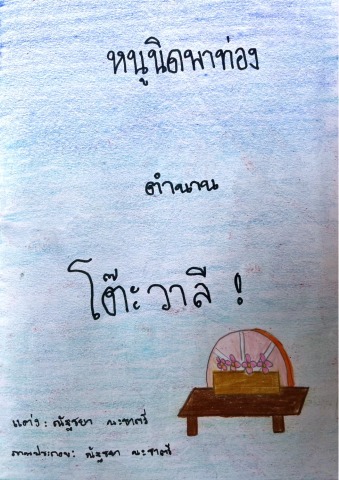 หนูนิดพาท่อง
ตำนาน
โต๊ะวาลี !
แต่ง : ณัฐชยา ณะชาตรี
ภาพประกอบ: ณัฐชยา